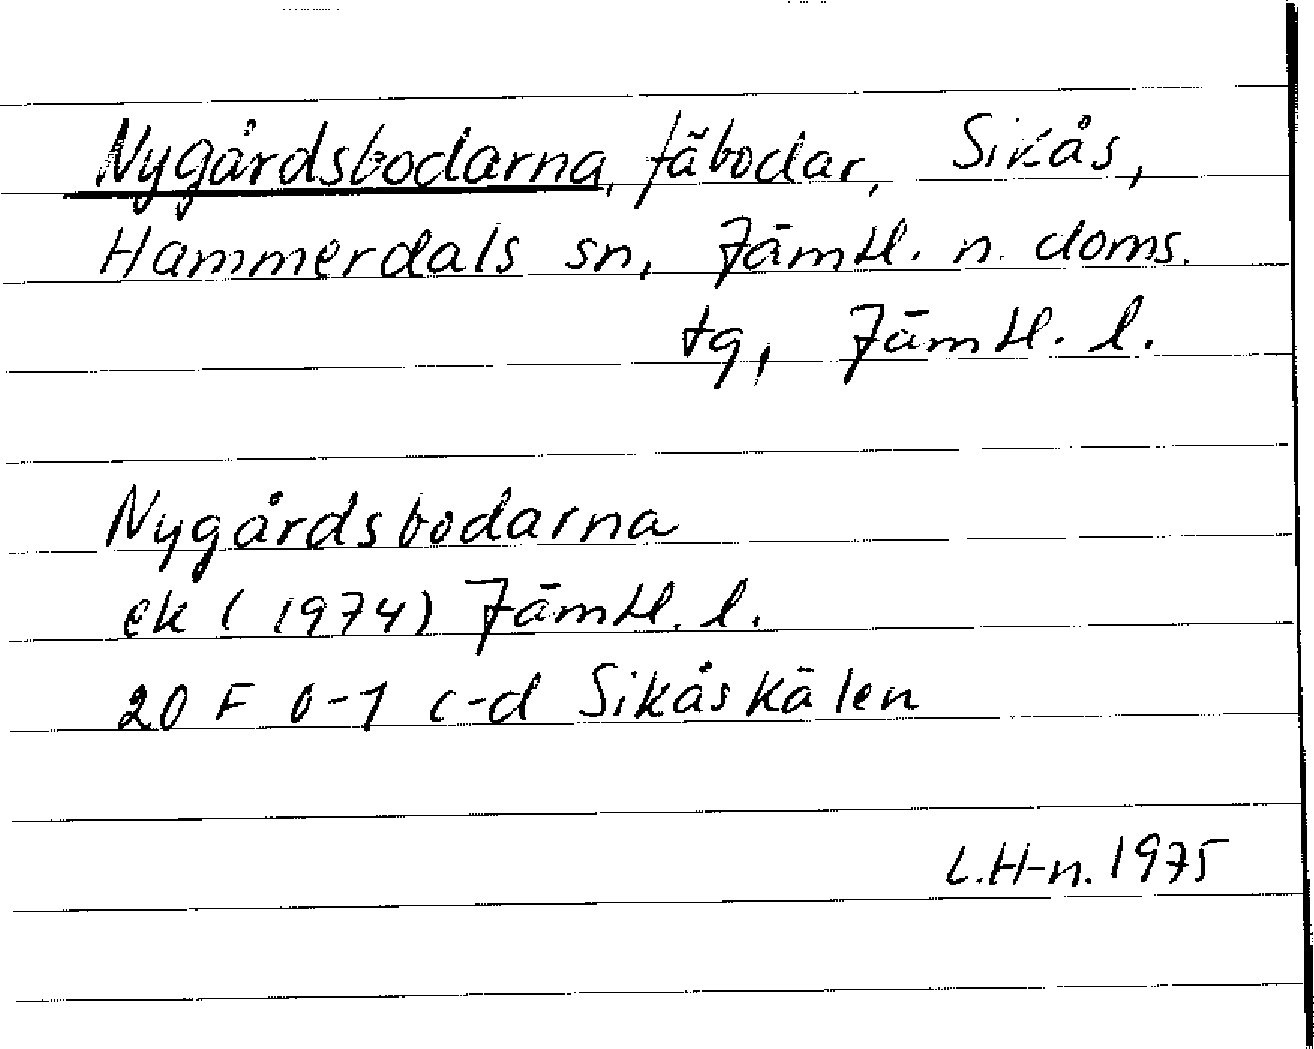 Nygårdsbodarna, fäbodar, Sikås,
Hammerdals sn, Jämtl. n. doms.
tg, Jämtl. l.
Nygårdsbodarna
ek (1974) Jämtl. l.
20 F 0-1 c-d Sikåskälen
L.H-n. 1975